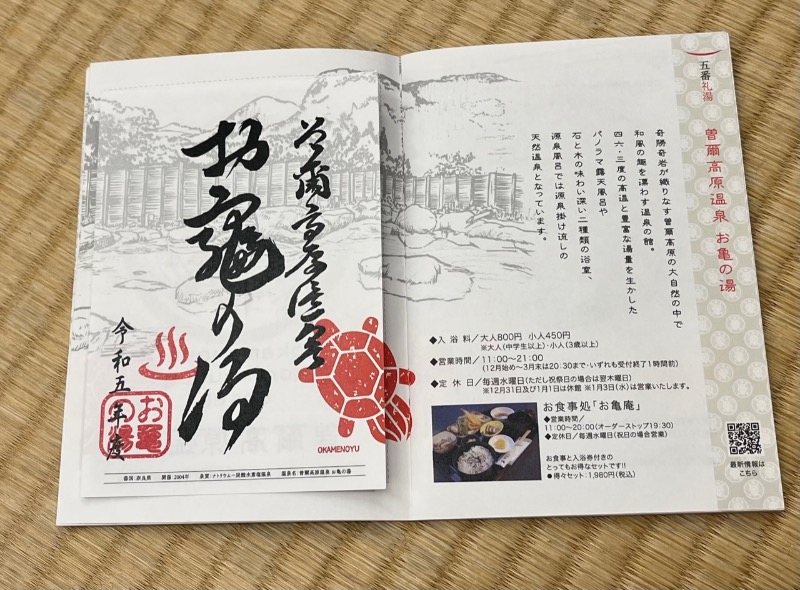 曽爾高原温泉
お亀の湯
令和五年度
お亀の湯
OKAMENOYU
泉質:ナトリウムー炭酸水素塩温泉 温泉名:曽爾高原温泉 お亀の湯
五番礼湯
曽爾高原温泉 お亀の湯
奇勝奇岩が織りなす曽爾高原の大自然の中で
和風の趣を漂わす温泉の館。
四六・三度の高温と豊富な湯量を生かした
パノラマ露天風呂や
石と木の味わい深い二種類の浴室、
源泉風呂では源泉掛け流しの
天然温泉となっています。
◆入 浴 料/大人800円 小人450円
※大人(中学生以上)・小人(3歳以上)
◆営業時間/11:00〜21:00
(12月始め〜3月末は20:30まで・いずれも受付終了1時間前)
◆定 休 日/毎週水曜日(ただし祝祭日の場合は翌木曜日)
※12月31日及び1月1日は休館 ※1月3日(水)は営業いたします。
お食事処「お亀庵」
◆営業時間/
11:00〜20:00(オーダーストップ19:30)
◆定休日/毎週水曜日(祝日の場合営業)
お食事と入浴券付きの
とってもお得なセットです!!
●得々セット:1,980円(税込)
最新情報は
こちら